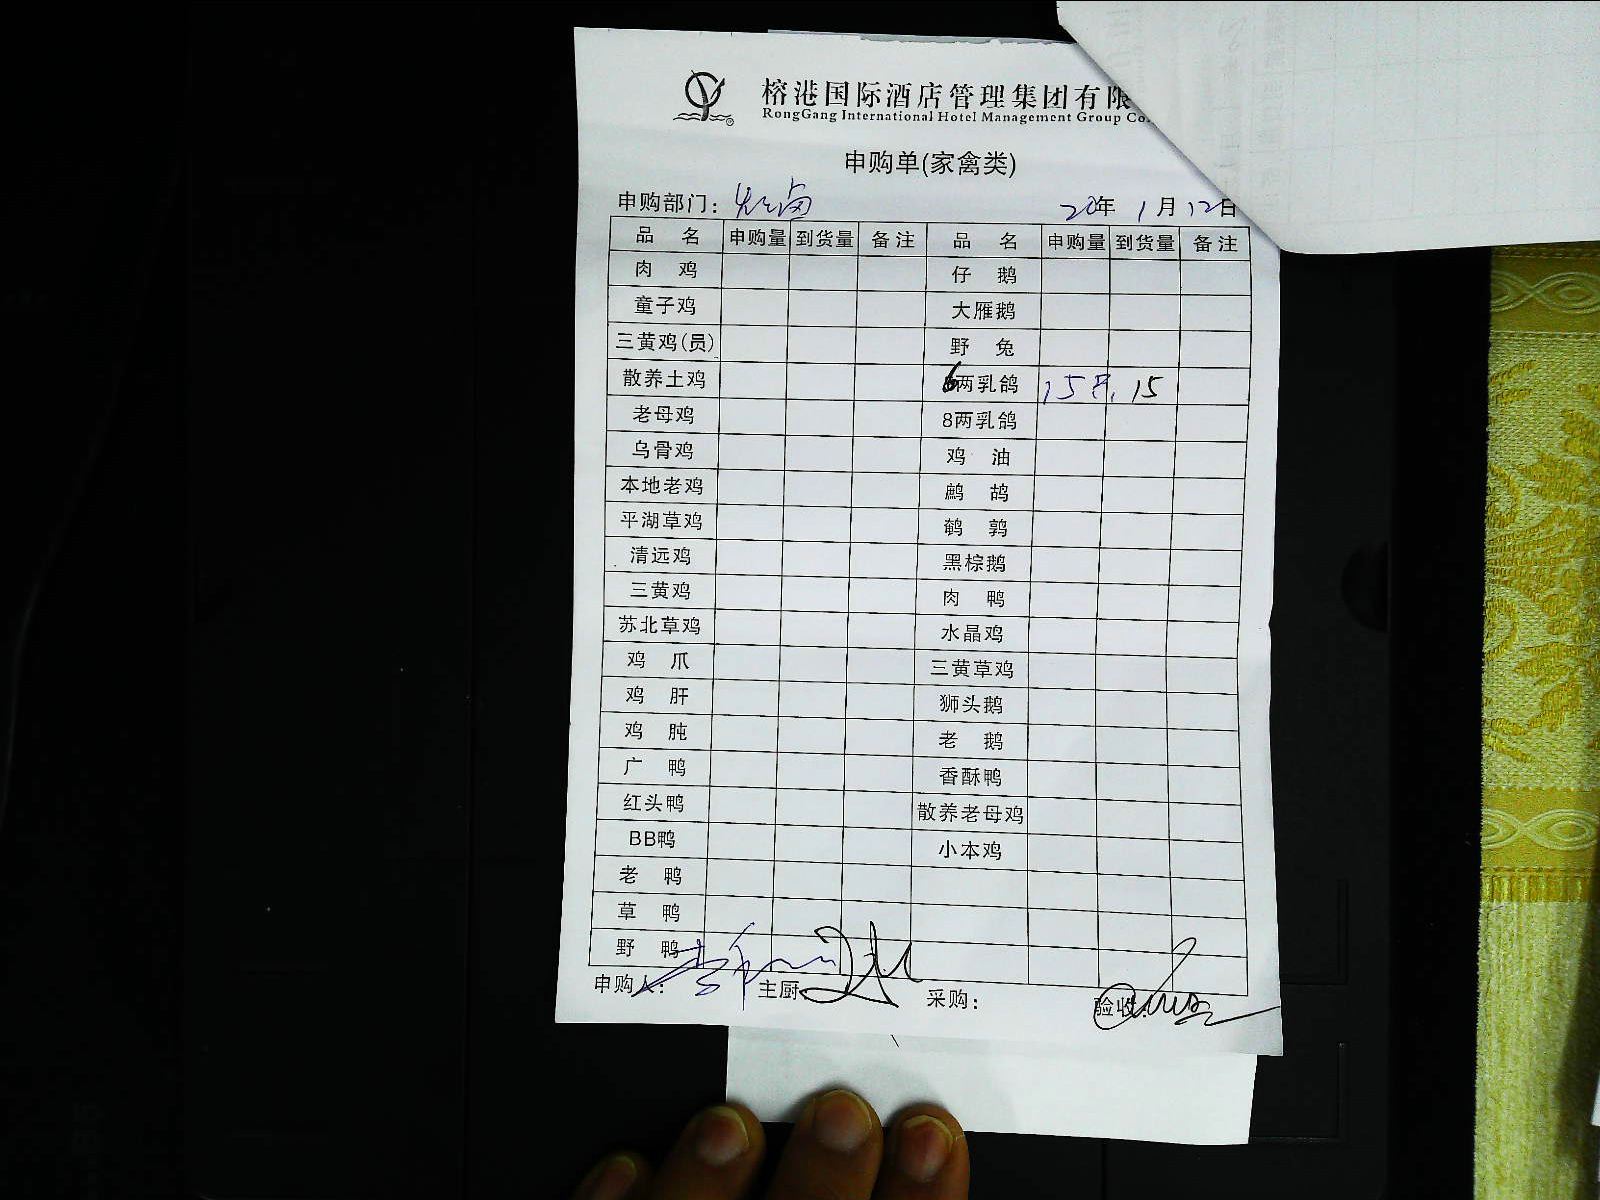 榕港国际酒店管理集团有限
RongGang International Hotel Management Group Co.
申购单(家禽类)
申购部门: 烧卤 20年 1月 12日
品 名 申购量 到货量 备注 品 名 申购量 到货量 备注
肉 鸡 仔 鹅
童子鸡 大雁鹅
三黄鸡(员) 野 兔
散养土鸡 6两乳鸽 15只. 15
老母鸡 8两乳鸽
乌骨鸡 鸡 油
本地老鸡 鹧 鸪
平湖草鸡 鹌 鹑
清远鸡 黑棕鹅
三黄鸡 肉 鸭
苏北草鸡 水晶鸡
鸡 爪 三黄草鸡
鸡 肝 狮头鹅
鸡 肫 老 鹅
广 鸭 香酥鸭
红头鸭 散养老母鸡
BB鸭 小本鸡
老 鸭
草 鸭
野 鸭
申购人: 主厨 采购: 验收: